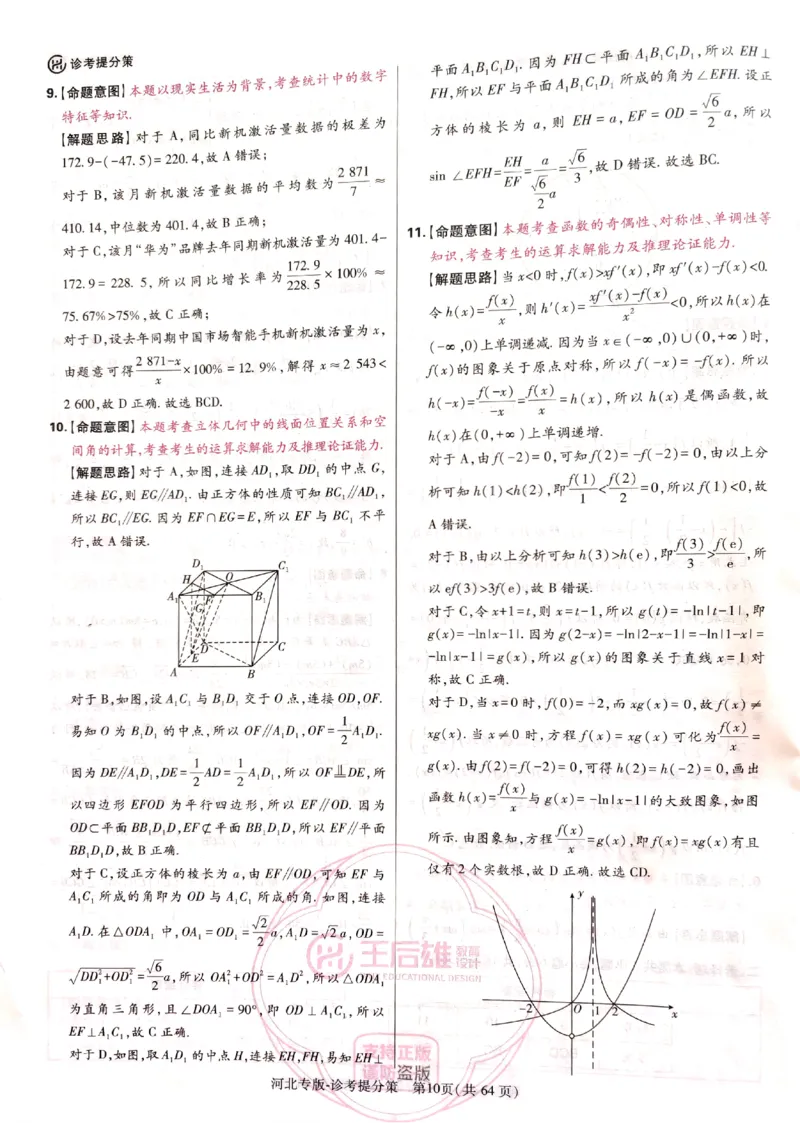 诊考提分策
9.【命题意图】本题以现实生活为背景,考查统计中的数字
特征等知识.
【解题思路】对于 A,同比新机激活量数据的极差为
172.9-(-47.5)=220.4,故 A 错误;
对于 B,该月新机激活量数据的平均数为 2 871/7 ≈
410.14,中位数为 401.4,故 B 正确;
对于 C,该月“华为”品牌去年同期新机激活量为 401.4-
172.9=228.5,所以同比增长率为 172.9/228.5 ×100% ≈
75.67%>75%,故 C 正确;
对于 D,设去年同期中国市场智能手机新机激活量为 x,
由题意可得 (2 871-x)/x ×100% = 12.9%,解得 x≈2 543<
2 600,故 D 正确.故选 BCD.
10.【命题意图】本题考查立体几何中的线面位置关系和空
间角的计算,考查考生的运算求解能力及推理论证能力.
【解题思路】对于 A,如图,连接 AD₁,取 DD₁ 的中点 G,
连接 EG,则 EG∥AD₁.由正方体的性质可知 BC₁∥AD₁,
所以 BC₁∥EG.因为 EF∩EG=E,所以 EF 与 BC₁ 不平
行,故 A 错误.
D₁
C₁
H
O
A₁
F
B₁
G
D
C
E
A
B
对于 B,如图,设 A₁C₁ 与 B₁D₁ 交于 O 点,连接 OD,OF.
易知 O 为 B₁D₁ 的中点,所以 OF∥A₁D₁,OF= 1/2 A₁D₁.
因为 DE∥A₁D₁,DE= 1/2 AD= 1/2 A₁D₁,所以 OF⫫DE,所
以四边形 EFOD 为平行四边形,所以 EF∥OD.因为
OD⊂平面 BB₁D₁D,EF⊄平面 BB₁D₁D,所以 EF∥平面
BB₁D₁D,故 B 正确.
对于 C,设正方体的棱长为 a,由 EF∥OD,可知 EF 与
A₁C₁ 所成的角即为 OD 与 A₁C₁ 所成的角.如图,连接
A₁D.在△ODA₁ 中,OA₁=OD₁= √2/2 a,A₁D=√2a,OD=
√(DD₁²+OD₁²) = √6/2 a,所以 OA₁²+OD²=A₁D²,所以△ODA₁
为直角三角形,且∠DOA₁=90°,即 OD⊥A₁C₁,所以
EF⊥A₁C₁,故 C 正确.
对于 D,如图,取 A₁D₁ 的中点 H,连接 EH,FH,易知 EH⊥
平面 A₁B₁C₁D₁.因为 FH⊂平面 A₁B₁C₁D₁,所以 EH⊥
FH,所以 EF 与平面 A₁B₁C₁D₁ 所成的角为∠EFH.设正
方体的棱长为 a,则 EH=a,EF=OD= √6/2 a,所以
sin ∠EFH= EH/EF = a/(√6/2 a) = √6/3,故 D 错误.故选 BC.
11.【命题意图】本题考查函数的奇偶性、对称性、单调性等
知识,考查考生的运算求解能力及推理论证能力.
【解题思路】当 x<0 时,f(x)>xf′(x),即 xf′(x)-f(x)<0.
令 h(x)= f(x)/x,则 h′(x)= (xf′(x)-f(x))/x² <0,所以 h(x)在
(-∞,0)上单调递减.因为当 x∈(-∞,0)∪(0,+∞)时,
f(x)的图象关于原点对称,所以 f(-x)=-f(x).所以
h(-x)= f(-x)/-x = f(x)/x =h(x),所以 h(x)是偶函数,故
h(x)在(0,+∞)上单调递增.
对于 A,由 f(-2)=0,可知 f(2)=-f(-2)=0,由以上分
析可知 h(1)<h(2),即 f(1)/1 < f(2)/2 =0,所以 f(1)<0,故
A 错误.
对于 B,由以上分析可知 h(3)>h(e),即 f(3)/3 > f(e)/e,所
以 ef(3)>3f(e),故 B 错误.
对于 C,令 x+1=t,则 x=t-1,所以 g(t)=-ln|t-1|,即
g(x)=-ln|x-1|.因为 g(2-x)=-ln|2-x-1|=-ln|1-x|=
-ln|x-1|=g(x),所以 g(x)的图象关于直线 x=1 对
称,故 C 正确.
对于 D,当 x=0 时,f(0)=-2,而 xg(x)=0,故 f(x)≠
xg(x).当 x≠0 时,方程 f(x)=xg(x)可化为 f(x)/x =
g(x).由 f(2)=f(-2)=0,可得 h(2)=h(-2)=0,画出
函数 h(x)= f(x)/x 与 g(x)=-ln|x-1|的大致图象,如图
所示.由图象知,方程 f(x)/x =g(x),即 f(x)=xg(x)有且
仅有 2 个实数根,故 D 正确.故选 CD.
y
-2
O
1
2
x
王后雄
教育
设计
EDUCATIONAL DESIGN
支持正版
谨防盗版
河北专版-诊考提分策 第10页(共 64 页)